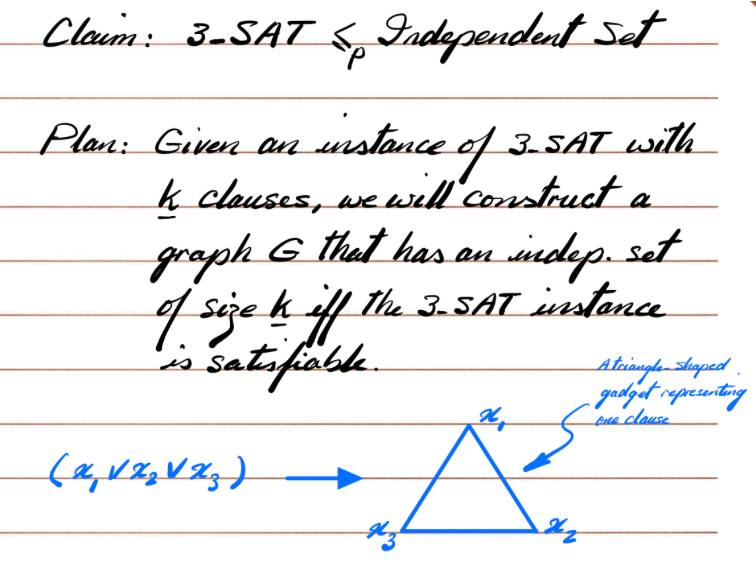 Claim: 3-SAT ≤ₚ Independent Set
Plan: Given an instance of 3-SAT with
k clauses, we will construct a
graph G that has an indep. set
of size k iff the 3-SAT instance
is satisfiable.
A triangle-shaped
gadget representing
one clause
x₁
(x₁ ∨ x₂ ∨ x₃)
x₃
x₂